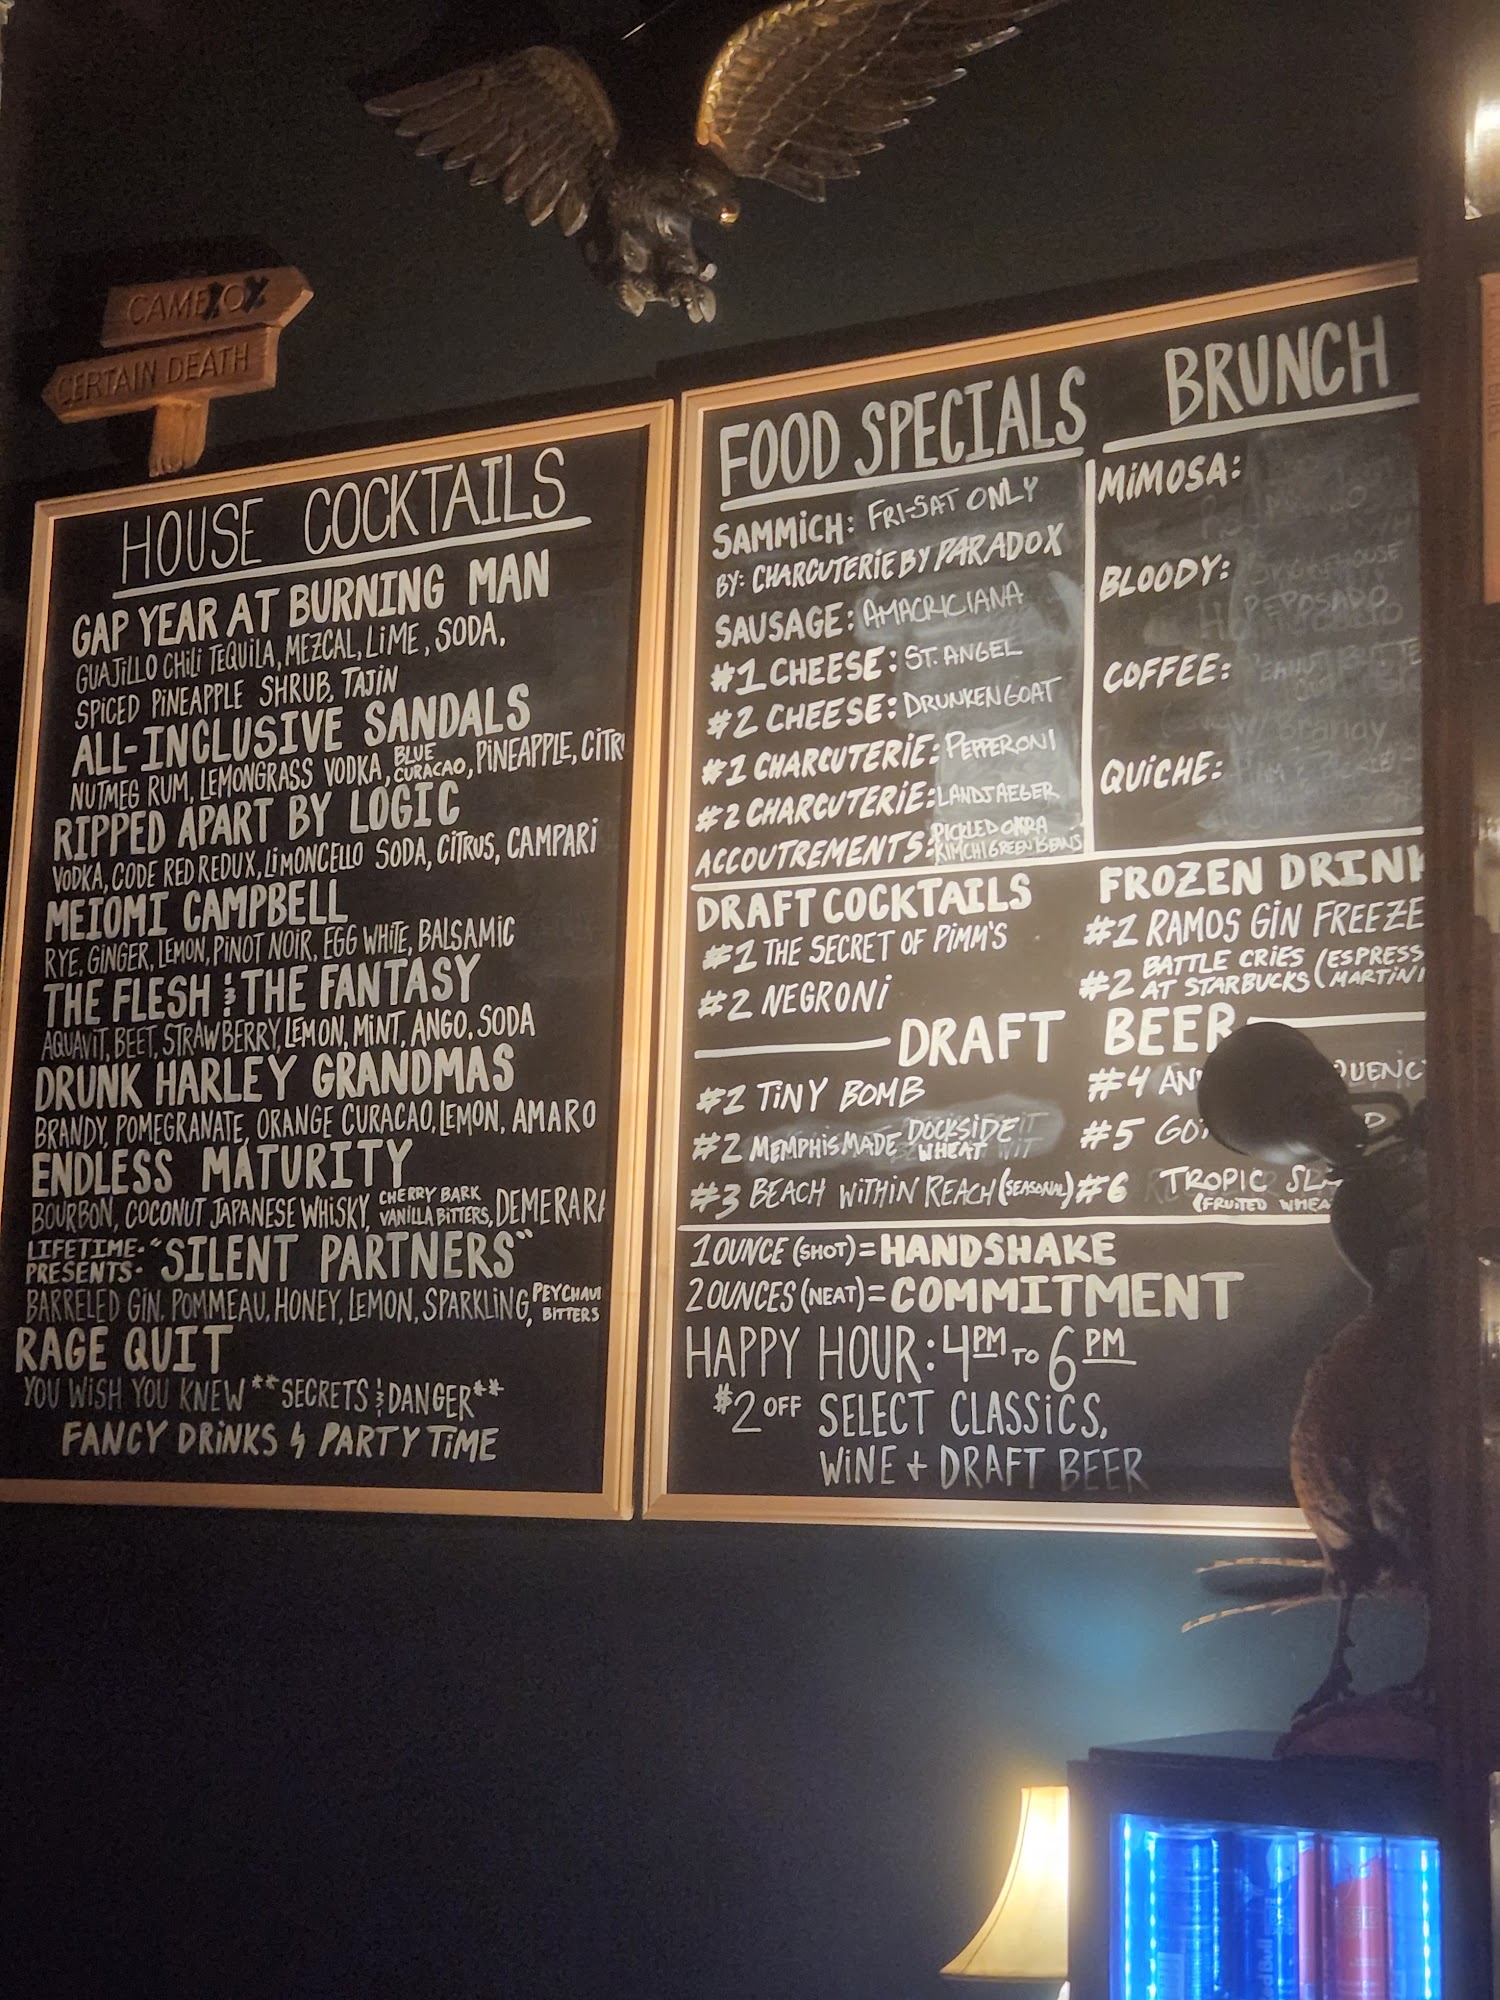 CAMEXOX
CERTAIN DEATH
HOUSE COCKTAILS
GAP YEAR AT BURNING MAN
GUAJILLO CHILI TEQUILA, MEZCAL, LIME, SODA,
SPICED PINEAPPLE SHRUB, TAJIN
ALL-INCLUSIVE SANDALS
NUTMEG RUM, LEMONGRASS VODKA, BLUE CURACAO, PINEAPPLE, CITR
RIPPED APART BY LOGIC
VODKA, CODE RED REDUX, LIMONCELLO SODA, CITRUS, CAMPARI
MEIOMI CAMPBELL
RYE, GINGER, LEMON, PINOT NOIR, EGG WHITE, BALSAMIC
THE FLESH & THE FANTASY
AQUAVIT, BEET, STRAWBERRY, LEMON, MINT, ANGO, SODA
DRUNK HARLEY GRANDMAS
BRANDY, POMEGRANATE, ORANGE CURACAO, LEMON, AMARO
ENDLESS MATURITY
BOURBON, COCONUT JAPANESE WHISKY, CHERRY BARK VANILLA BITTERS, DEMERARA
LIFETIME PRESENTS - "SILENT PARTNERS"
BARRELED GIN, POMMEAU, HONEY, LEMON, SPARKLING, PEYCHAU BITTERS
RAGE QUIT
YOU WISH YOU KNEW **SECRETS & DANGER**
FANCY DRINKS & PARTY TIME
FOOD SPECIALS
SAMMICH: FRI-SAT ONLY
BY: CHARCUTERIE BY PARADOX
SAUSAGE: AMACRICIANA
#1 CHEESE: ST. ANGEL
#2 CHEESE: DRUNKEN GOAT
#1 CHARCUTERIE: PEPPERONI
#2 CHARCUTERIE: LANDJAEGER
ACCOUTREMENTS: PICKLED OKRA
KIMCHI GREEN BEANS
BRUNCH
MIMOSA:
BLOODY:
REPOSADO
COFFEE:
W/ Brandy
QUICHE:
DRAFT COCKTAILS
#1 THE SECRET OF PIMM'S
#2 NEGRONI
FROZEN DRINK
#1 RAMOS GIN FREEZE
#2 BATTLE CRIES AT STARBUCKS (ESPRESS MARTINI
DRAFT BEER
#1 TINY BOMB
#2 MEMPHIS MADE DOCKSIDE WHEAT
#3 BEACH WITHIN REACH (SEASONAL)
#4 AN QUENC
#5 GO
#6 TROPIC SL
(FRUITED WHEA
1 OUNCE (SHOT) = HANDSHAKE
2 OUNCES (NEAT) = COMMITMENT
HAPPY HOUR: 4PM TO 6PM
$2 OFF SELECT CLASSICS,
WINE + DRAFT BEER